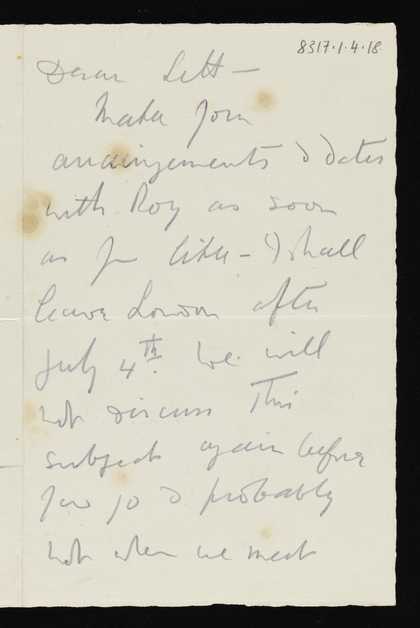 8317.1.4.18
Dear Lett —
Make your
arrangements & dates
with Roy as soon
as you like — I shall
leave London after
July 4th. We will
not discuss this
subject again before
you go & probably
not when we meet